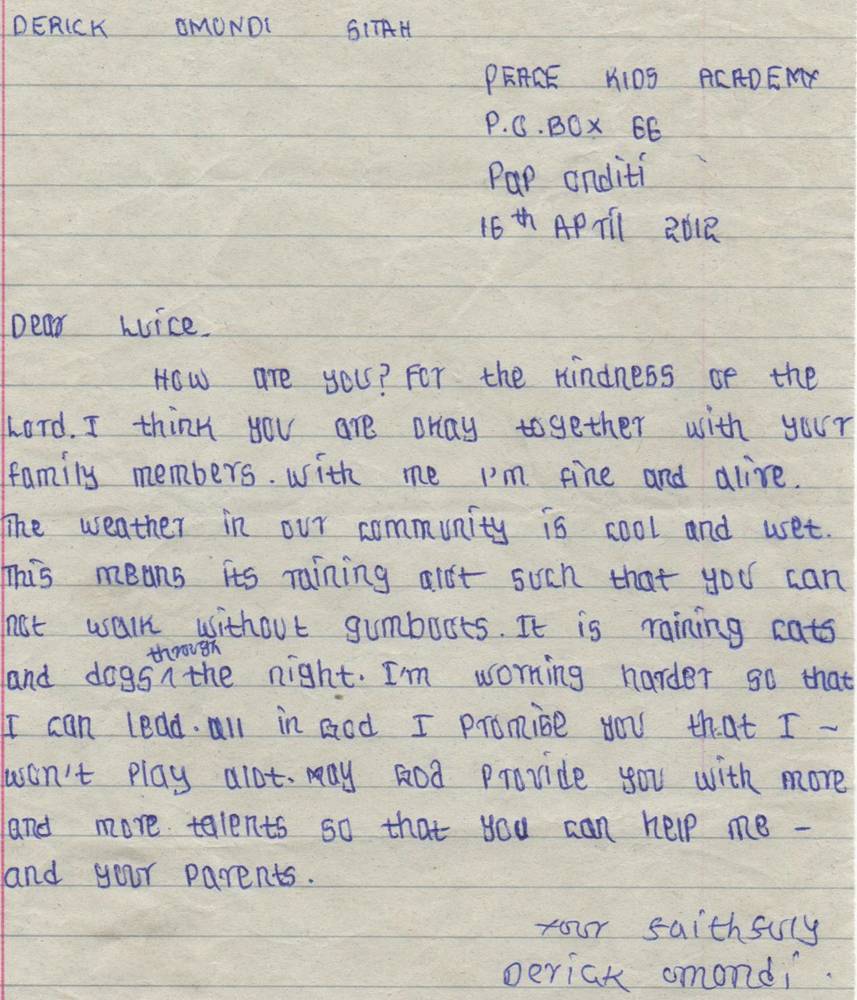 DERICK OMONDI SITAH
PEACE KIDS ACADEMY
P.O.BOX 66
Pap onditi
16th APRIl 2012
Dear Luice.
How are you? For the kindness of the
Lord. I think you are okay together with your
family members. with me I'm fine and alive.
The weather in our community is cool and wet.
This means its raining alot such that you can
not walk without gumboots. It is raining cats
and dogs ^through the night. I'm working harder so that
I can lead. all in God I promise you that I ~
won't play alot. may God provide you with more
and more talents so that you can help me -
and your parents.
your faithfuly
Derick omondi.